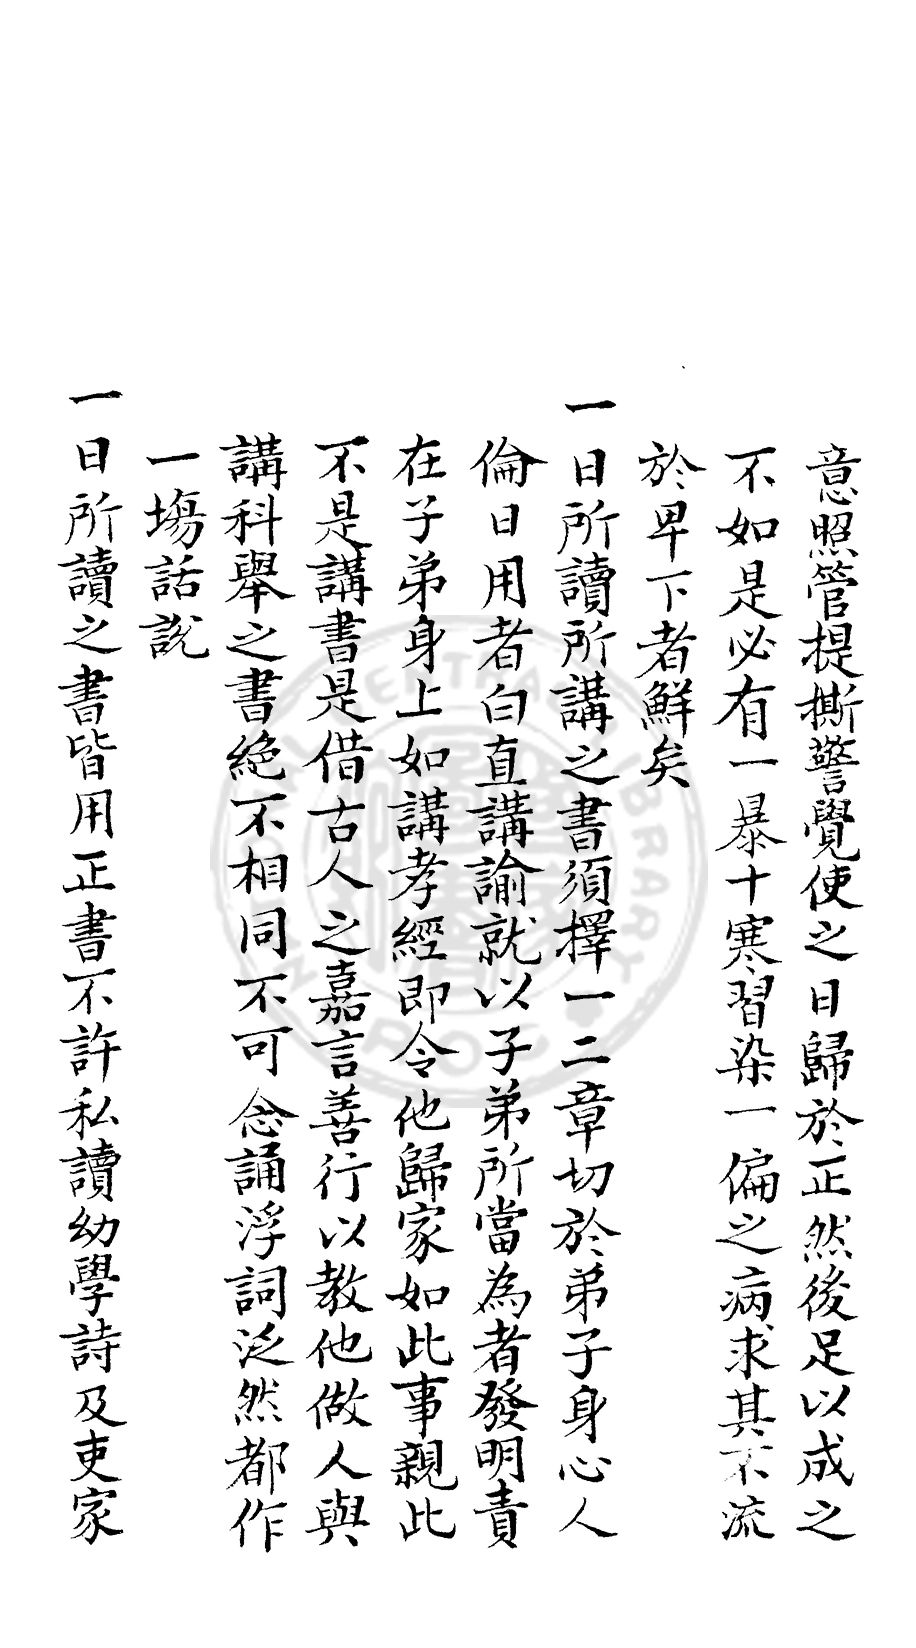 意照管提撕警覺使之日歸於正然後足以成之
不如是必有一暴十寒習染一偏之病求其不流
於卑下者鮮矣
一日所讀所講之書須擇一二章切於弟子身心人
倫日用者白直講諭就以子弟所當為者發明責
在子弟身上如講孝經即令他歸家如此事親此
不是講書是借古人之嘉言善行以教他做人與
講科舉之書絶不相同不可念誦浮詞泛然都作
一塲話說
一日所讀之書皆用正書不許私讀幼學詩及吏家